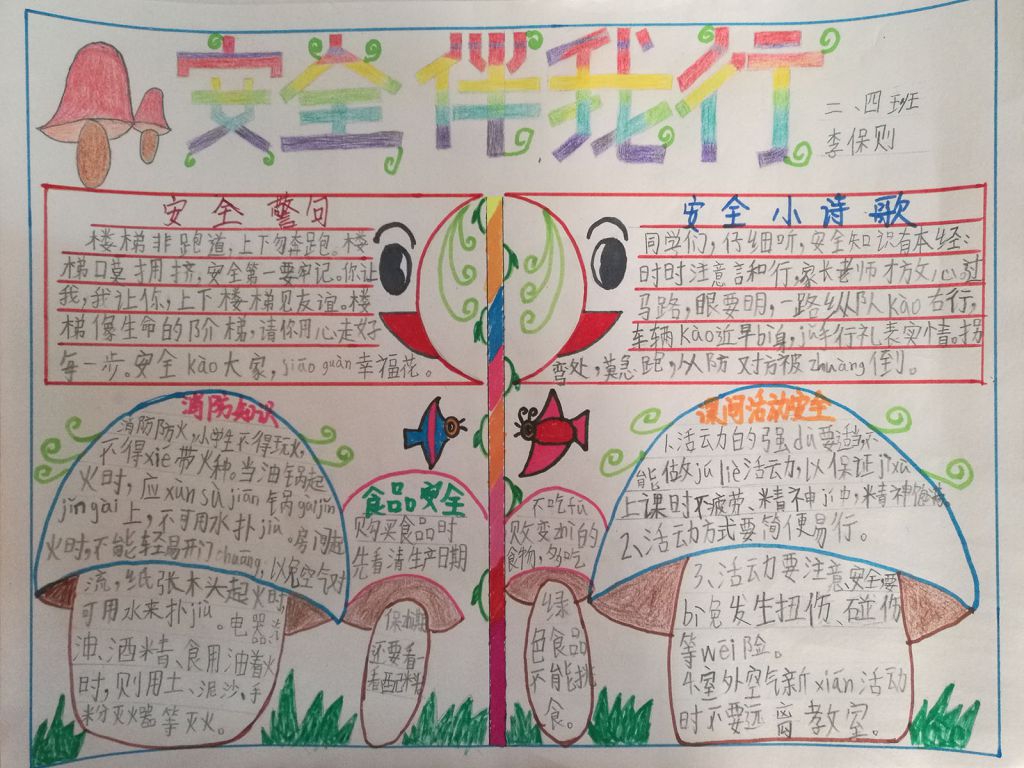 安全伴我行
二、四班
李保则
安全警句
楼梯非跑道,上下勿奔跑。楼
梯口莫拥挤,安全第一要牢记。你让
我,我让你,上下楼梯见友谊。楼
梯像生命的阶梯,请你用心走好
每一步。安全kào大家,jiāo guàn幸福花。
安全小诗歌
同学们,仔细听,安全知识有本经:
时时注意言和行,家长老师才放心,过
马路,眼要明,一路纵队kào右行,
车辆kào近早bì身,jǔ手行礼表实情。拐
弯处,莫急跑,以防对方被zhuàng倒。
消防知识
消防防火,小学生不得玩火,
不得xié带火种。当油锅起
火时,应xùn sù jiān锅gàijǐn
jǐn gài上,不可用水扑jiù。房间起
火时,不能轻易开门chuāng,以免空气对
流,纸张木头起火时
可用水来扑jiù。电器
油、酒精、食用油着火
时,则用土、泥沙、手
粉灭火器等灭火。
食品安全
购买食品时
先看清生产日期
保质期
还要看一
看配料
不吃fǔ
败变zhì的
食物,多吃
绿
色食品
不能挑
食。
课间活动安全
1、活动的强dù要适当,不
能做jù liè活动,以保证jì xù
上课时不疲劳、精神jí中,精神饱满。
2、活动方式要简便易行。
3、活动要注意安全要
bì免发生扭伤、碰伤
等wēi险。
4、室外空气新xiān活动
时不要远离教室。